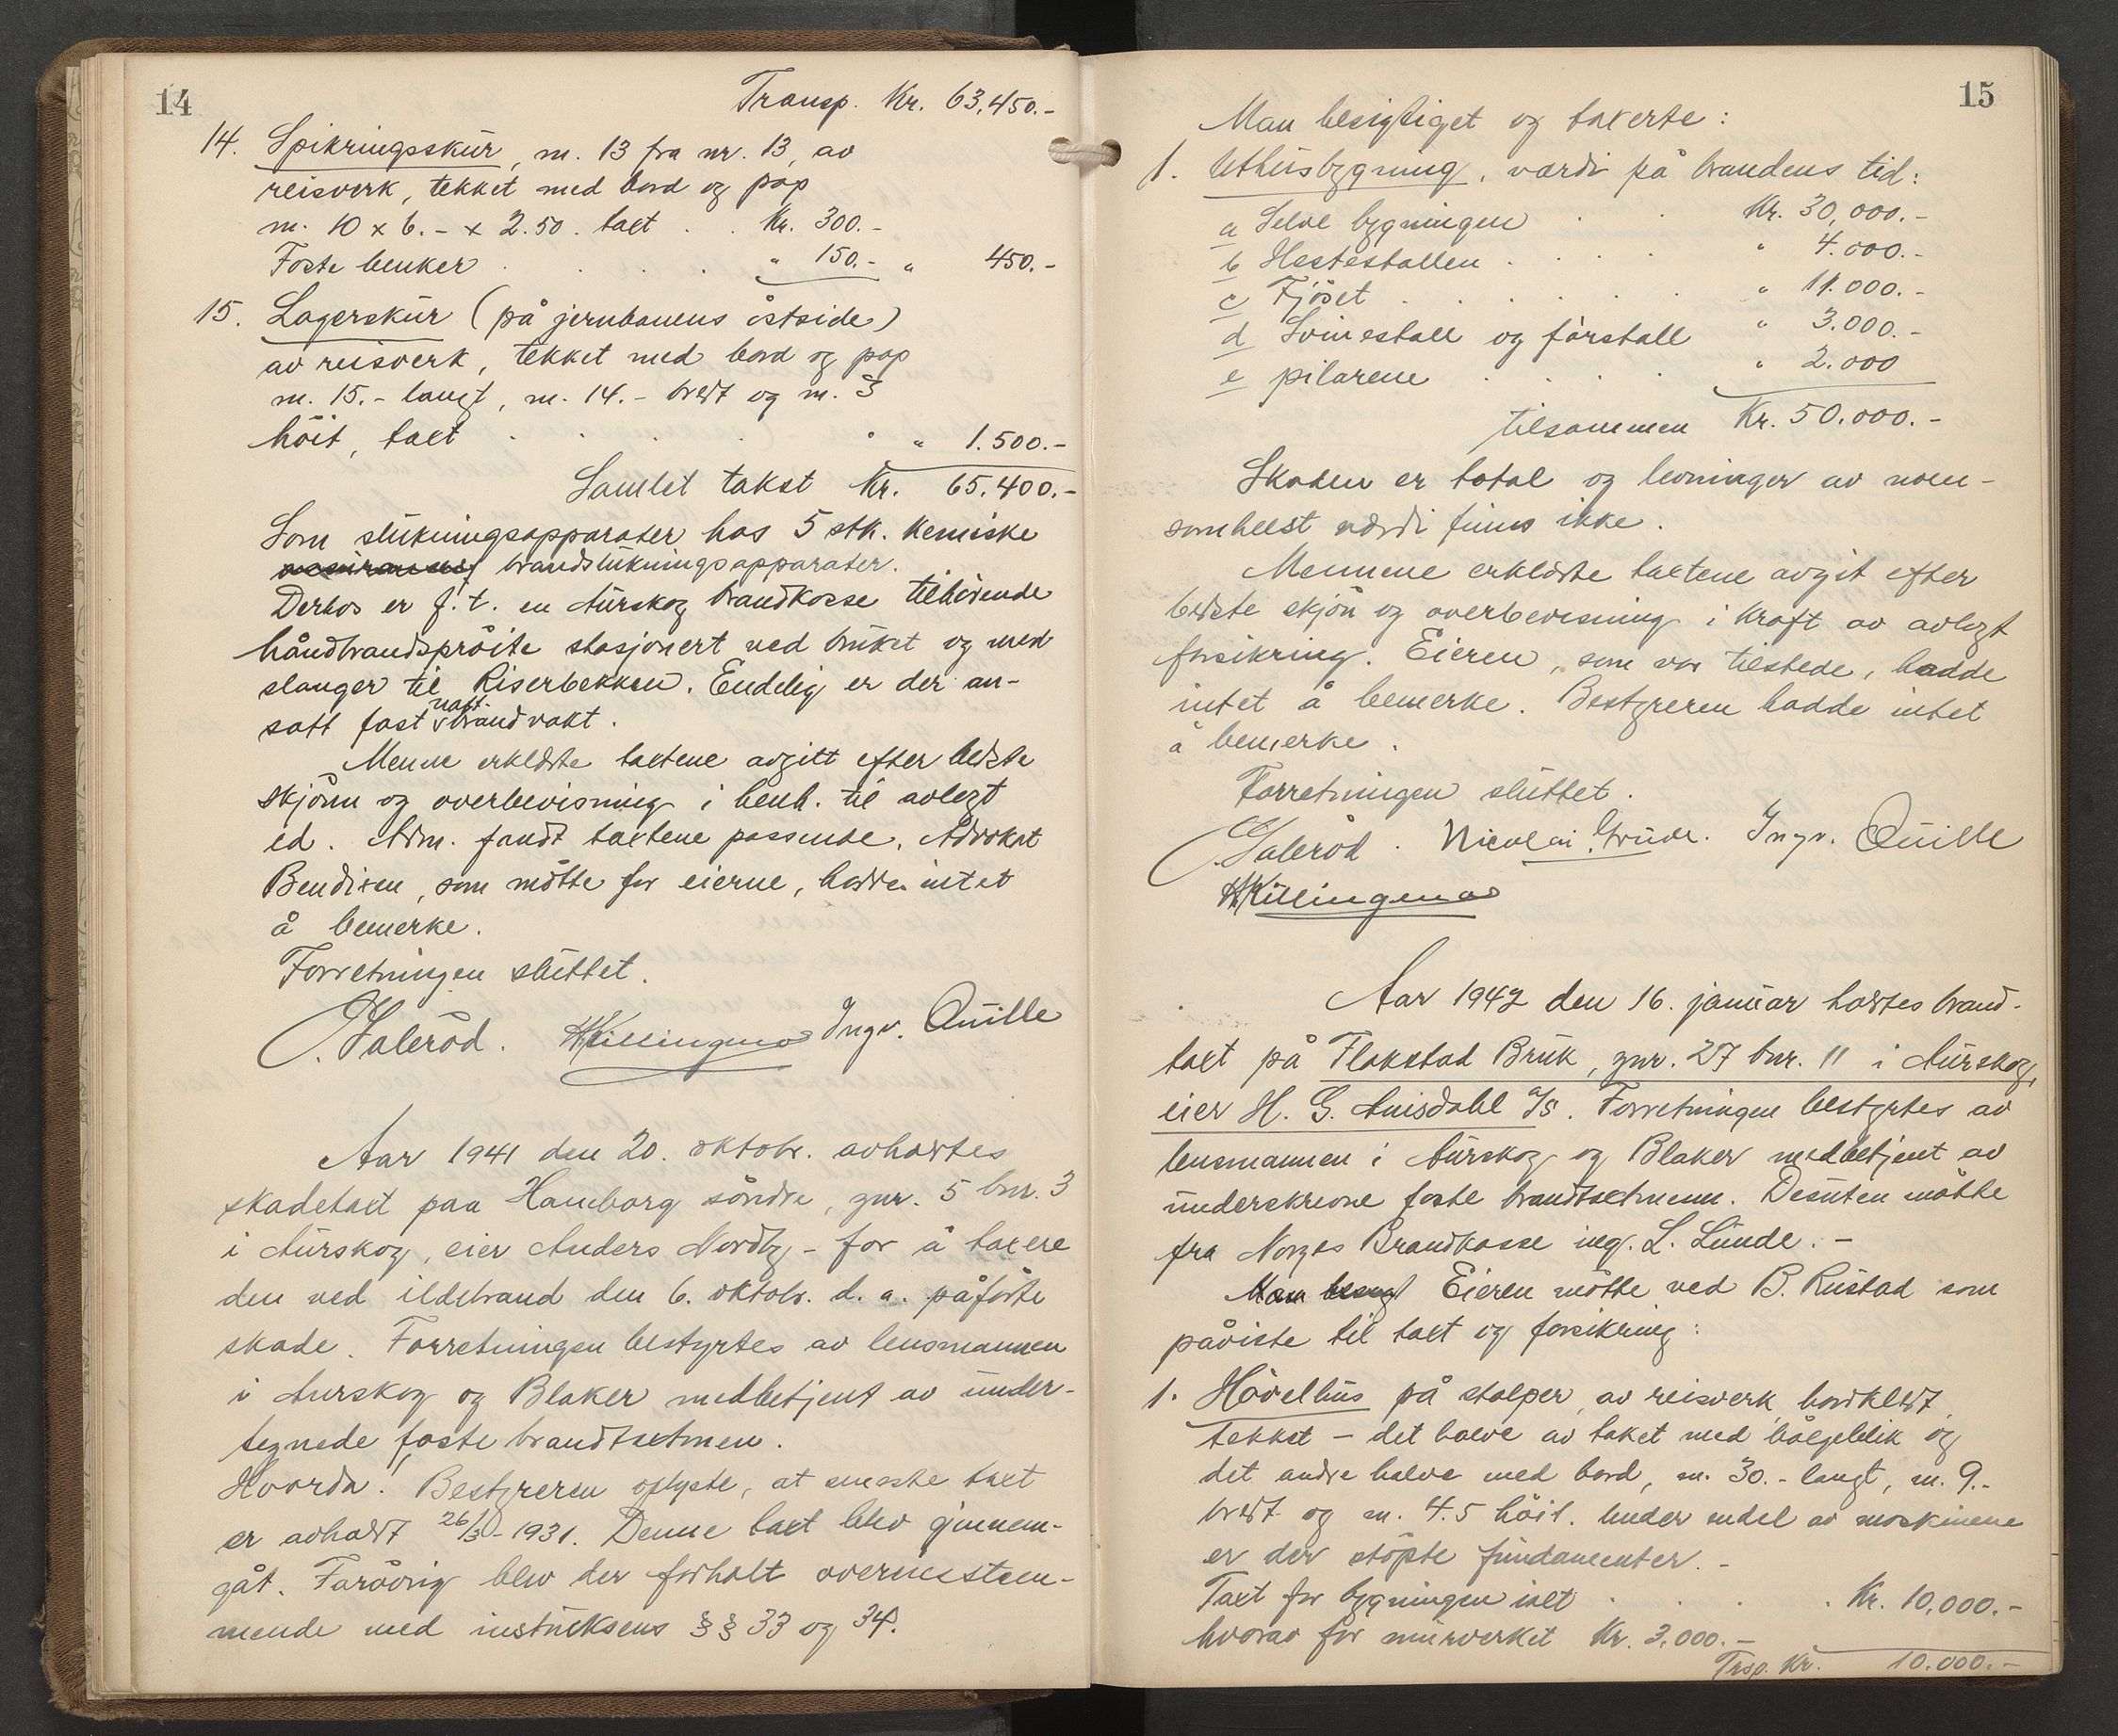 14
Transp. Kr. 63,450.-
14. Spikringsskur, m. 13 fra nr. 13, av
reisverk, tekket med bord og pap
m. 10 x 6.- x 2.50. taxt . . Kr. 300.-
Faste benker . . . . " 150.- " 450.-
15. Lagerskur (på jernbanens østside)
av reisverk, tekket med bord og pap
m. 15.- langt, m. 14.- bredt og m. 3
høit, taxt . . . . . " 1.500.-
Samlet takst Kr. 65.400.-
Som slukningsapparater has 5 stk. kemiske
brandslukningsapparater.
Derhos er f.t. en Aurskog brandkasse tilhørende
håndbrandsprøite stasjonert ved bruket og med
slanger til Riserbekken. Endelig er der an-
satt fast natt- brandvakt.
Menne erklærte taxtene avgitt efter bedste
skjønn og overbevisning i henh. til avlegt
ed. Adm. fandt taxtene passende. Advokat
Bendixen, som møtte for eierne, hadde intet
å bemerke.
Forretningen sluttet.
J. Falerød. H Killingmo Ingv. Quille
Aar 1941 den 20. oktobr. avholdtes
skadetaxt paa Hamborg søndre, gnr. 5 bnr. 3
i Aurskog, eier Anders Nordby - for å taxere
den ved ildebrand den 6. oktobr. d. a. påførte
skade. Forretningen bestyrtes av lensmannen
i Aurskog og Blaker medbetjent av under-
tegnede faste brandtaxtmen.
Hvorda! Bestyreren oplyste, at seneste taxt
er avholdt 26/3-1931. Denne taxt blev gjennem-
gåt. Forøvrig blev der forholt overensstem-
mende med instruksens §§ 33 og 34.
15
Man besigtiget og taxerte:
1. Uthusbygning, værdi på brandens tid:
a Selve bygningen . . Kr. 30,000.-
b Hestestallen . . . . " 4.000.-
c Fjøset . . . . . . " 11.000.-
d Svinestall og fårstall " 3.000.-
e pilarene . . . . " 2.000
tilsammen Kr. 50.000.-
Skaden er total og levninger av noen-
somhelst værdi finns ikke.
Mennene erklærte taxtene avgit efter
bedste skjøn og overbevisning i kraft av avlegt
forsikring. Eieren, som var tilstede, hadde
intet å bemerke. Bestyreren hadde intet
å bemerke.
Forretningen sluttet.
J. Falerød. Nicolai Grude. Ingv. Quille
H Killingmo
Aar 1942 den 16. januar holdtes brand-
taxt på Flakstad Bruk, gnr. 27 bnr. 11 i Aurskog,
eier H. G. Amsdahl A/S. Forretningen bestyrtes av
lensmannen i Aurskog og Blaker medbetjent av
underskrevne faste brandtaxtmenn. Desuten møtte
fra Norges Brandkasse ing. L. Lunde. -
Man Eieren møtte ved B. Rustad som
påviste til taxt og forsikring:
1. Høvelhus på stolper av reisverk, bordklædt,
tekket - det halve av taket med bølgeblik og
det andre halve med bord, m. 30.- langt, m. 9.-
bredt og m. 4.5 høit. Under endel av maskinene
er der støpte fundamenter. -
Taxt for bygningen ialt . . . . Kr. 10,000.-
hvorav for murverket Kr. 3,000.-
Trsp. Kr. 10.000.-